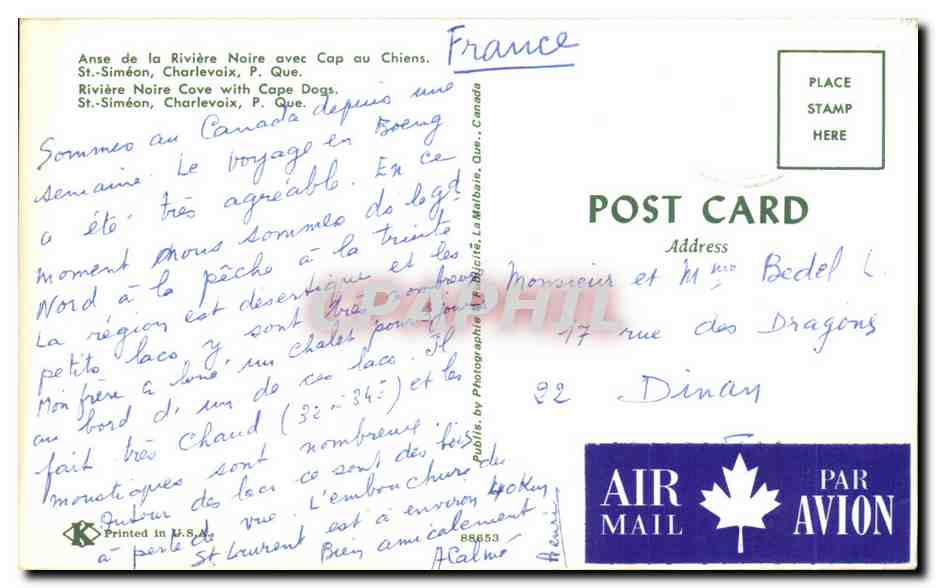 Anse de la Rivière Noire avec Cap au Chiens.
St.-Siméon, Charlevoix, P. Que.
Rivière Noire Cove with Cape Dogs.
St.-Siméon, Charlevoix, P. Que.
Sommes au Canada depuis une
semaine. Le voyage en Boeng
a été très agréable. En ce
moment nous sommes ds le gd
Nord à la pêche à la truite
La région est désertique et les
petits lacs y sont très nombreux
Mon frère a loué un chalet pour jours
au bord d'un de ces lacs. Il
fait très chaud (32 à 34°) et les
moustiques sont nombreux.
Autour des lacs ce sont des bois
à perte de vue. L'embouchure du
St Laurent est à environ 40 Km
Bien amicalement
Henri
Printed in U.S.A.
88653
Publis. by Photographie & Publicité, La Malbaie, Que., Canada
CPAPHIL
France
PLACE
STAMP
HERE
POST CARD
Address
Monsieur et Mme Bedel L.
17 rue des Dragons
22 Dinan
AIR
MAIL
PAR
AVION